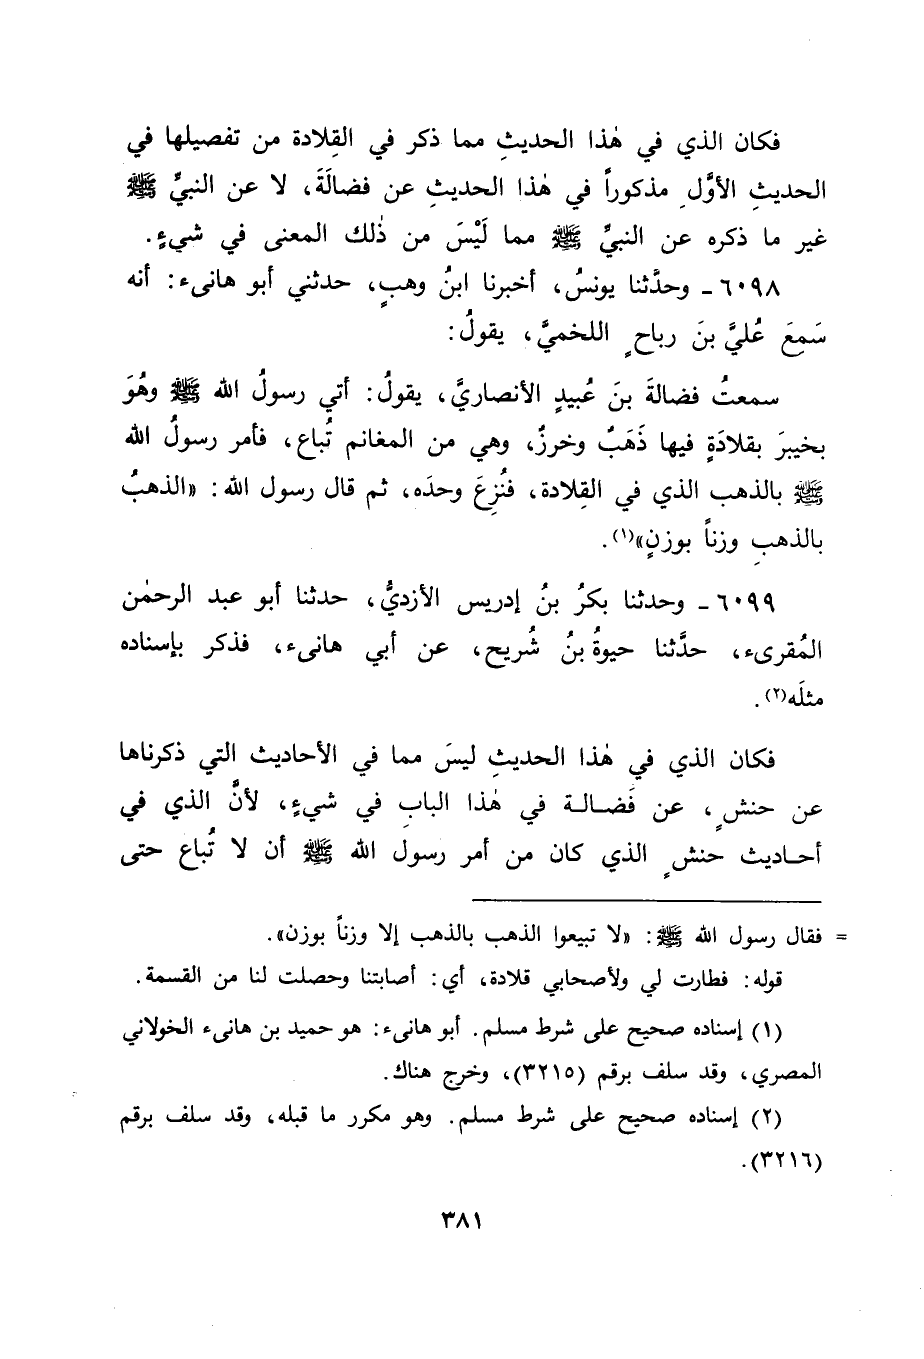 فكان الذي في هٰذا الحديثِ مما ذكر في القِلادة من تفصيلها في
الحديثِ الأوَّلِ مذكوراً في هٰذا الحديثِ عن فضالَةَ، لا عن النبيِّ ﷺ
غير ما ذكره عن النبيِّ ﷺ مما لَيْسَ من ذٰلك المعنى في شيءٍ.
٦٠٩٨ ـ وحدَّثنا يونسُ، أخبرنا ابنُ وهبٍ، حدثني أبو هانىء: أنه
سَمِعَ عُليَّ بنَ رباحٍ اللخميَّ، يقولُ:
سمعتُ فضالةَ بنَ عُبيدٍ الأنصاريَّ، يقولُ: أتي رسولُ الله ﷺ وهُوَ
بخيبرَ بقلادَةٍ فيها ذَهَبٌ وخرزٌ، وهي من المغانم تُباع، فأمر رسولُ الله
ﷺ بالذهب الذي في القِلادة، فنُزِعَ وحدَه، ثم قال رسول الله: «الذهبُ
بالذهبِ وزناً بوزنٍ»(١).
٦٠٩٩ ـ وحدثنا بكرُ بنُ إدريس الأزديُّ، حدثنا أبو عبد الرحمٰن
المُقرىء، حدَّثنا حيوةُ بنُ شُريح، عن أبي هانىء، فذكر بإسناده
مثلَه(٢).
فكان الذي في هٰذا الحديثِ ليسَ مما في الأحاديث التي ذكرناها
عن حنشٍ، عن فَضالة في هٰذا البابِ في شيءٍ، لأنَّ الذي في
أحاديث حنشٍ الذي كان من أمر رسول الله ﷺ أن لا تُباع حتى
= فقال رسول الله ﷺ: «لا تبيعوا الذهب بالذهب إلا وزناً بوزن».
قوله: فطارت لي ولأصحابي قلادة، أي: أصابتنا وحصلت لنا من القسمة.
(١) إسناده صحيح على شرط مسلم. أبو هانىء: هو حميد بن هانىء الخولاني
المصري، وقد سلف برقم (٣٢١٥)، وخرج هناك.
(٢) إسناده صحيح على شرط مسلم. وهو مكرر ما قبله، وقد سلف برقم
(٣٢١٦).
٣٨١